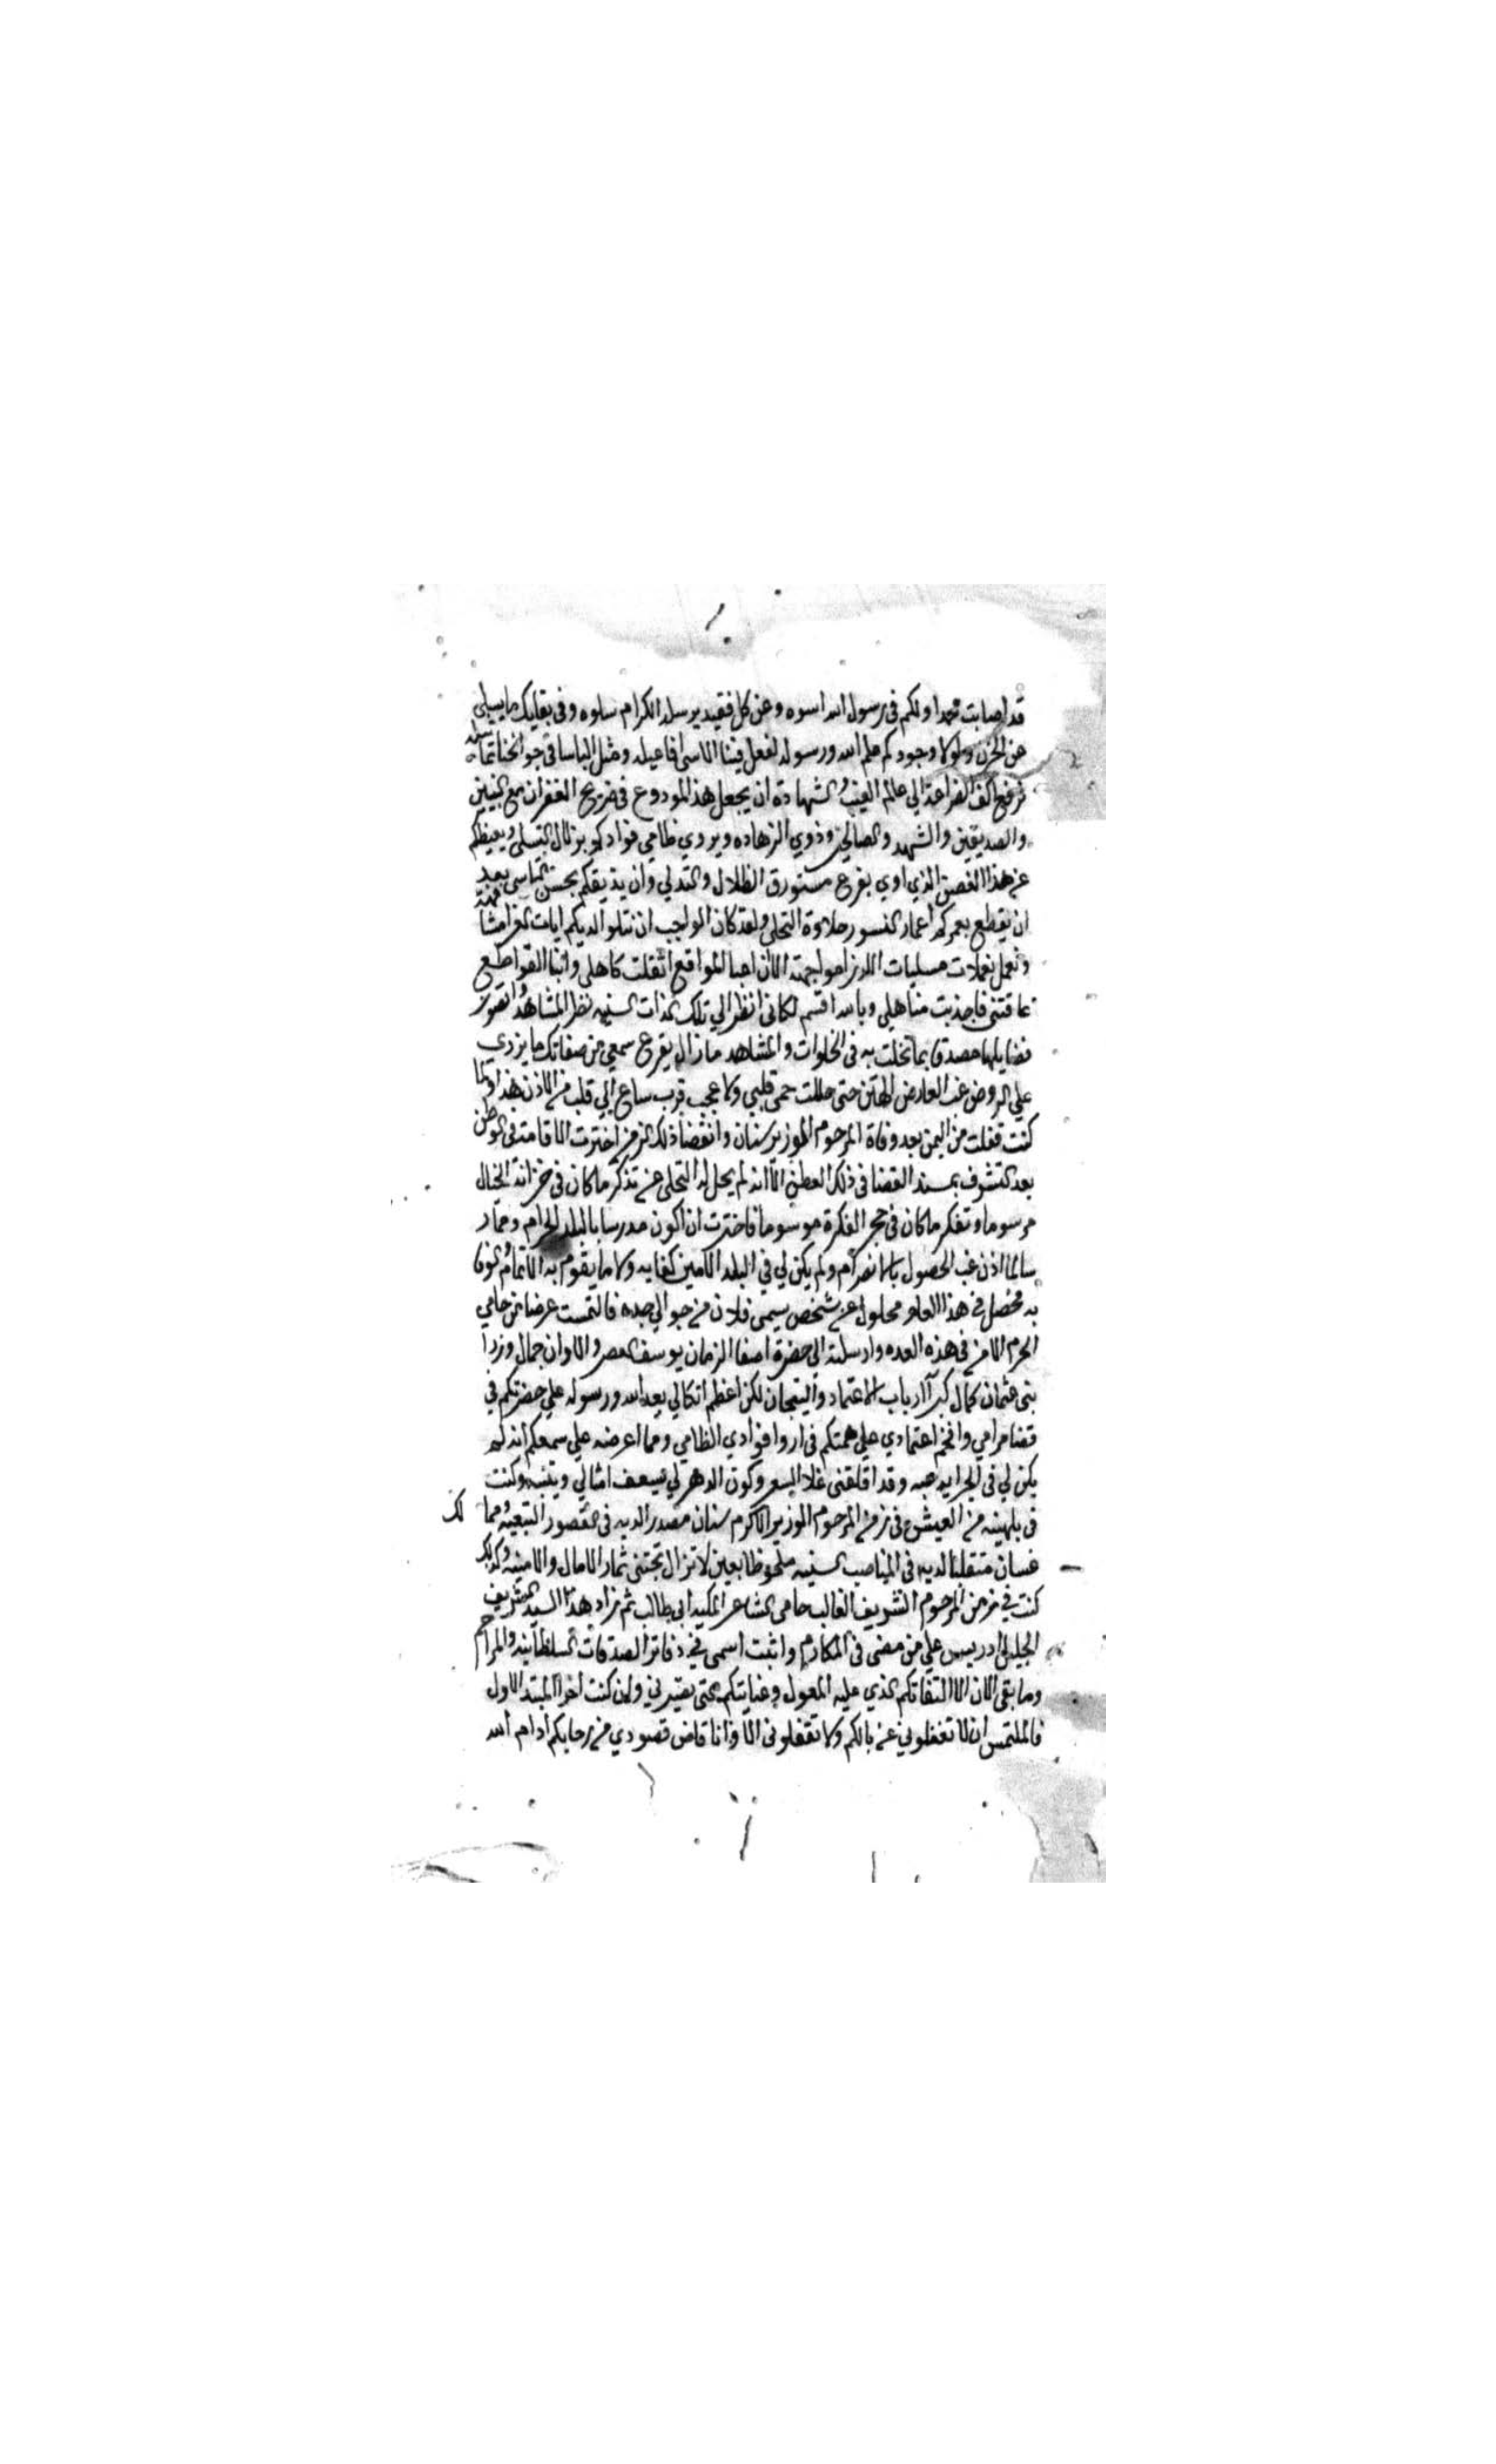 قد اصابت محمدا ولكم في رسول الله اسوه وعن كل فقيد برسله الكرام سلوه وفي بقايك ما يسلي
عن الحزن ولولا وجودكم علم الله ورسوله لفعل فينا الاسى افاعيله ومثل الباسا في جوانحنا تماثيله
نرفع اكف الضراعة الي عالم الغيب والشهادة ان يجعل هذا المودوع في ضريح الغفران مع النبيين
والصديقين والشهدا والصالحين وذوي الزهاده ويروي ظامي فوادكم بزلال التسلي ويعيظكم
عن هذا الغصن الذي اوي بفرع مستورق الظلال والتدلي وان يذيقكم بحسن التاسي بعد
ان يقطع بعمركم اعمار النسور حلاوة التحلي ولقد كان الواجب ان نتلو الديكم ايات العزا مشافهة
ونعمل يعملات مسليات اللزام لجهة الا ان اعبا المواقع اثقلت كاهلي وانبا القواطع
عاقتني فاجذبت مناهلي وبالله اقسم لكاني انظر الي تلك الذات السنيه نظر المشاهد واتصور
فضايلها مصدقا بما تخلت به في الخلوات والمشاهد مازال يقرع سمعي من صفاتك ما يزدي
علي الروض غب العارض الهتن حتي حللت حمي قلبي ولا عجب قرب ساع الي قلب من الاذن هذا ولما
كنت قفلت من اليمن بعد وفاة المرحوم الوزير سنان وانقضا ذلك الزمن اخترت الاقامة في الوطن
بعد التشرف بمسند القضا في ذلك العطن الا انه لم يحل له التحلي عن تذكر ماكان في خزانة الخيال
مرسوما وتفكر ماكان في حجر الفكرة موسوما فاخترت ان اكون مدرسا بالبلد الحرام وصار
سالما اذن غب الحصول بالانصرام ولم يكن لي في البلد الامين كفايه ولا ما يقوم به الاتمام الوفا
به فحصل في هذا العام محلول عن شخص يسمي فلان من جوالي جده فالتمست عرضا من حامي
الحرم الامن في هذه العده وارسلته الي حضرة اصف الزمان يوسف العصر والاوان جمال وزرا
بني عثمان كمال كبرآ ارباب الاعتماد والتيجان لكن اعظم اتكالي بعد الله ورسوله علي حضرتكم في
قضا مرامي وافخم اعتمادي علي همتكم في اروا فوادي الظامي ومما اعرضه علي سمعكم انه لم
يكن لي في الجرايد حبه وقد اقلقني غلا السعر وكون الدهر لي يسعف امثالي وينتبه وكنت
في بلهنيه من العيش في زمن المرحوم الوزير الاكرم سنان مصدر الديه في القصور التبعيه ومما لك
غسان متنقلا لديه في المناصب السنيه ملحوظا بعين لا تزال تجتني ثمار الامال والامنيه وكذلك
كنت في زمن المرحوم الشريف الغالب حامي المشاعر المكيه ابي طالب ثم زاد بعده السيد الشريف
الجليل ادريس علي من مضي في المكارم واثبت اسمي في دفاتر الصدقات السلطانيه والمراحم
وما بقي الان الا التفاتكم الذي عليه المعول وعنايتكم حتي تصيرني وان كنت اخرا المبتدا الاول
فالملتمس ان لا تغفلوني عن بالكم ولا تقفلوني الا وانا قاض قصودي من رحابكم ادام الله